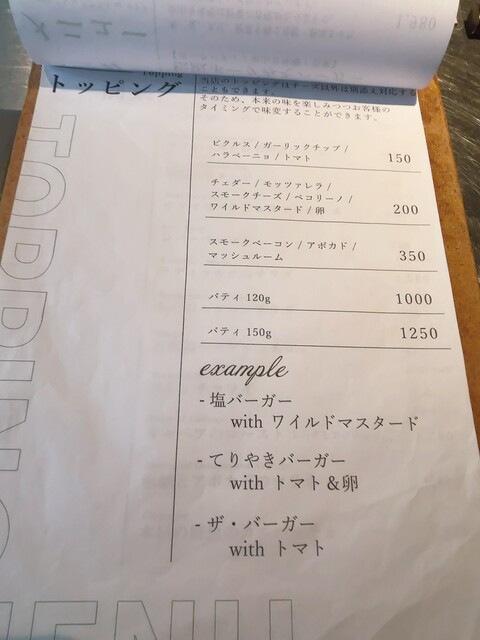 Topping
トッピング
当店のトッピングはチーズ以外は別添え対応する
こともできます。
そのため、本来の味を楽しみつつお客様の
タイミングで味変することができます。
ピクルス / ガーリックチップ /
ハラペーニョ / トマト 150
チェダー / モッツァレラ /
スモークチーズ / ペコリーノ /
ワイルドマスタード / 卵 200
スモークベーコン / アボカド /
マッシュルーム 350
パティ 120g 1000
パティ 150g 1250
example
- 塩バーガー
with ワイルドマスタード
- てりやきバーガー
with トマト&卵
- ザ・バーガー
with トマト
TOPPING